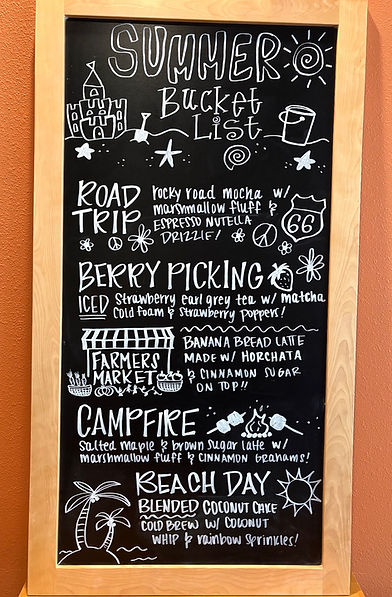 SUMMER
Bucket
List
ROAD
TRIP
rocky road mocha w/
marshmallow fluff &
ESPRESSO NUTELLA
DRIZZLE!
66
BERRY PICKING
ICED Strawberry earl grey tea w/ matcha
cold foam & strawberry poppers!
FARMERS
MARKET
BANANA BREAD LATTE
MADE W/ HORCHATA
& CINNAMON SUGAR
ON TOP!!
CAMPFIRE
salted maple & brown sugar latte w/
marshmallow fluff & CINNAMON GRAHAMS!
BEACH DAY
BLENDED COCONUT CAKE
COLD BREW W/ COCONUT
WHIP & rainbow sprinkles!